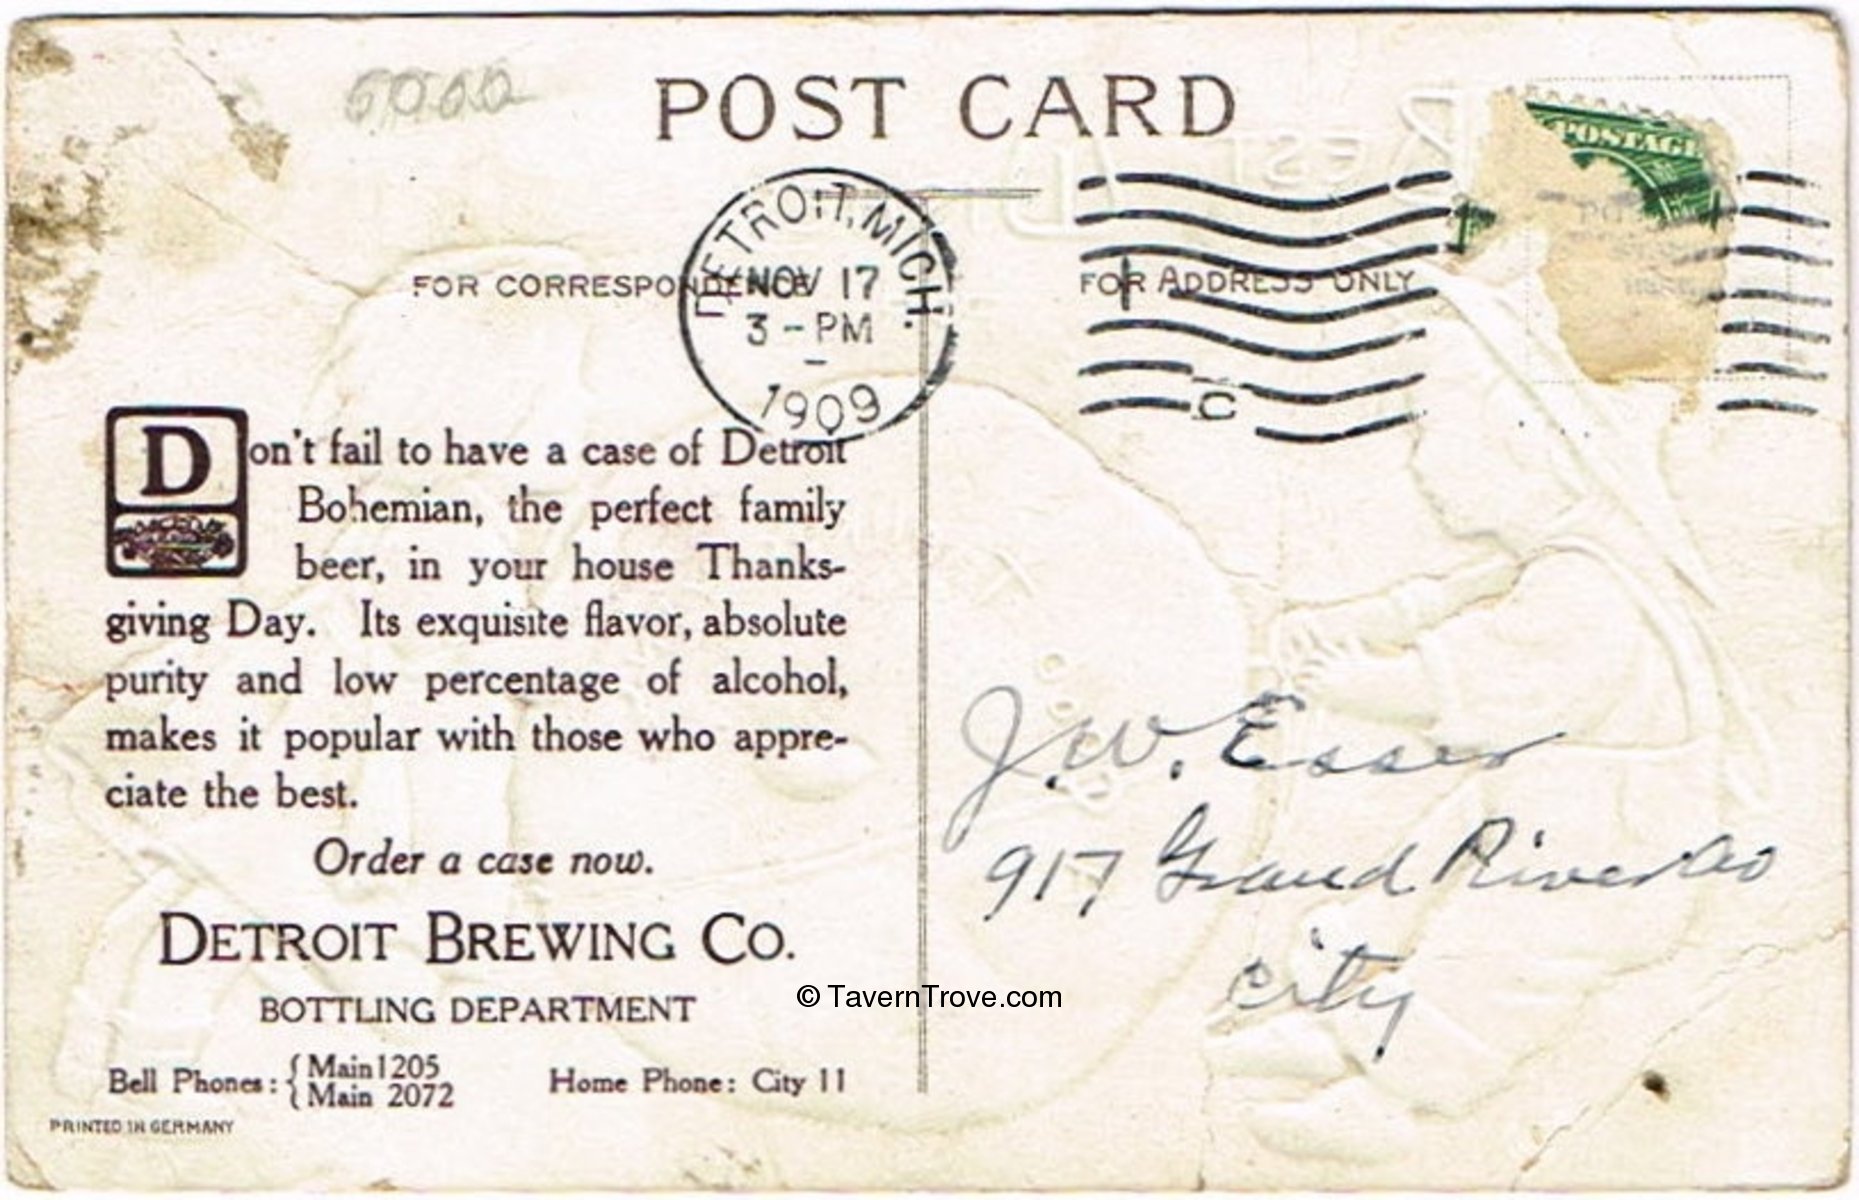 5000
POST CARD
POSTAGE
DETROIT, MICH.
NOV 17
3 - PM
1909
C
FOR CORRESPONDENCE
FOR ADDRESS ONLY
Don't fail to have a case of Detroit
Bohemian, the perfect family
beer, in your house Thanks-
giving Day. Its exquisite flavor, absolute
purity and low percentage of alcohol,
makes it popular with those who appre-
ciate the best.
Order a case now.
DETROIT BREWING CO.
BOTTLING DEPARTMENT
Bell Phones: { Main 1205
{ Main 2072
Home Phone: City 11
PRINTED IN GERMANY
J. W. Esser
917 Grand River
City
© TavernTrove.com